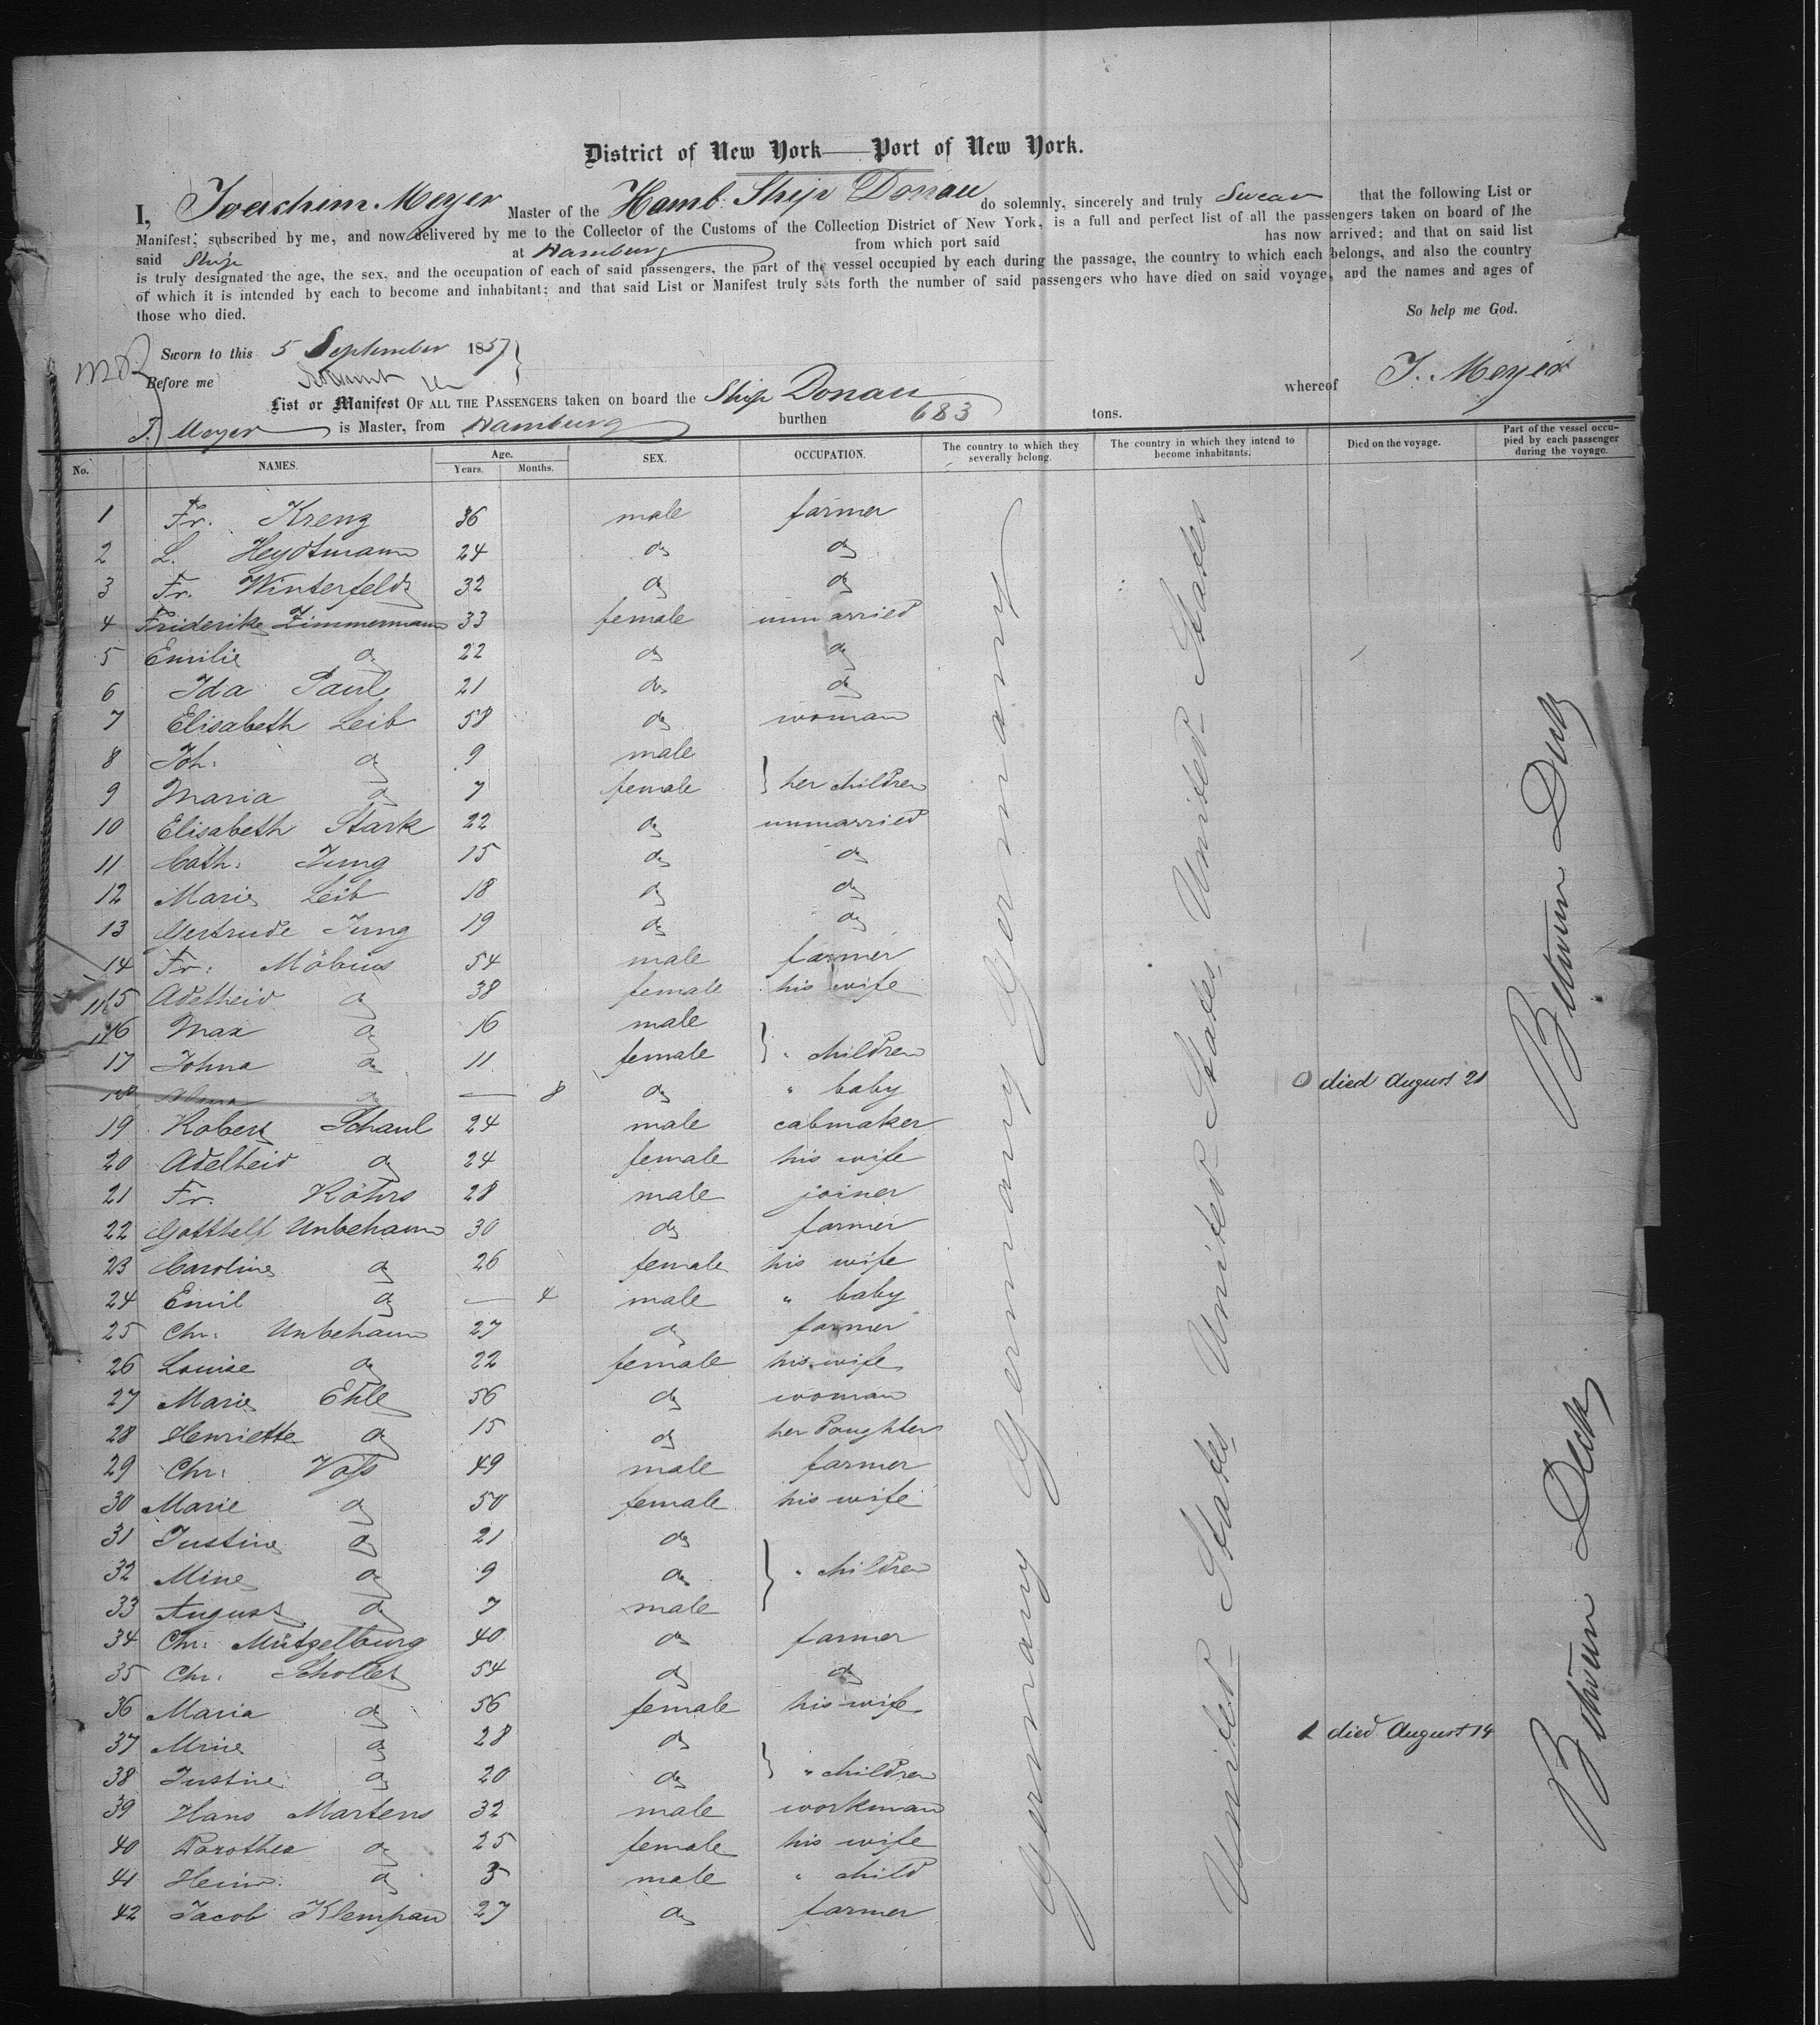 District of New York—Port of New York.
I, Joachim Meyer Master of the Hamb. Ship Donau do solemnly, sincerely and truly Swear that the following List or
Manifest, subscribed by me, and now delivered by me to the Collector of the Customs of the Collection District of New York, is a full and perfect list of all the passengers taken on board of the
said Ship at Hamburg from which port said has now arrived; and that on said list
is truly designated the age, the sex, and the occupation of each of said passengers, the part of the vessel occupied by each during the passage, the country to which each belongs, and also the country
of which it is intended by each to become and inhabitant; and that said List or Manifest truly sets forth the number of said passengers who have died on said voyage, and the names and ages of
those who died. So help me God.
Sworn to this 5 September 1857
Before me
J. Meyer
List or Manifest OF ALL THE PASSENGERS taken on board the Ship Donau whereof
J. Meyer is Master, from Hamburg burthen 683 tons.
No. NAMES. Age. Years. Months. SEX. OCCUPATION. The country to which they severally belong. The country in which they intend to become inhabitants. Died on the voyage. Part of the vessel occupied by each passenger during the voyage.
1 Fr. Kreng 36 male farmer
2 L. Heydtmann 24 do do
3 Fr. Winterfeldt 32 do do
4 Friderike Zimmermann 33 female unmarried
5 Emilie do 22 do do
6 Ida Paul 21 do do
7 Elisabeth Leib 58 do woman
8 Joh. do 9 male
9 Maria do 7 female } her children
10 Elisabeth Stark 22 do unmarried
11 Cath: Jung 15 do do
12 Marie Leib 18 do do
13 Gertrude Jung 19 do do
14 Fr: Möbius 54 male farmer
15 Adelheid do 38 female his wife
16 Max do 16 male
17 Johna do 11 female } " children
18 Alma do — 8 do " baby 0 died August 21
19 Robert Schaul 24 male cabmaker
20 Adelheid do 24 female his wife
21 Fr. Röhrs 28 male joiner
22 Gotthelf Unbehaun 30 do farmer
23 Caroline do 26 female his wife
24 Emil do — 4 male " baby
25 Chr: Unbehaun 27 do farmer
26 Louise do 22 female his wife
27 Marie Ehle 56 do woman
28 Henriette do 15 do her Daughter
29 Chr: Voß 49 male farmer
30 Marie do 50 female his wife
31 Justine do 21 do
32 Mine do 9 do } " children
33 August do 7 male
34 Chr: Mützelburg 40 do farmer
35 Chr: Scholle 54 do do
36 Maria do 56 female his wife
37 Mine do 28 do 1 died August 14
38 Justine do 20 do } " children
39 Hans Martens 32 male workman
40 Dorothea do 25 female his wife
41 Heinr. do 5 male " child
42 Jacob Klempau 27 do farmer
Germany Germany Germany Germany
United States United States United States
Between Deck
Between Deck